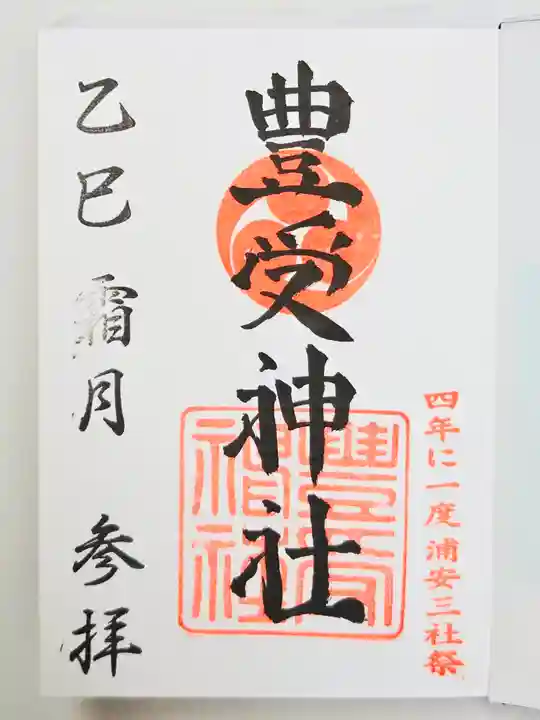 四年に一度浦安三社祭
豊受神社
乙巳 霜月 参拝